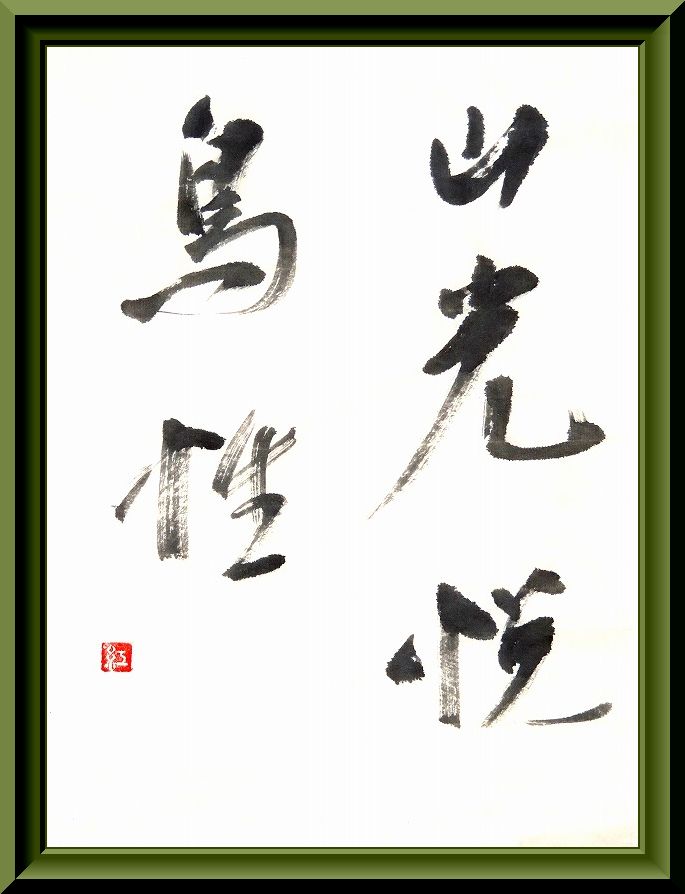 山光悦
鳥性
紅